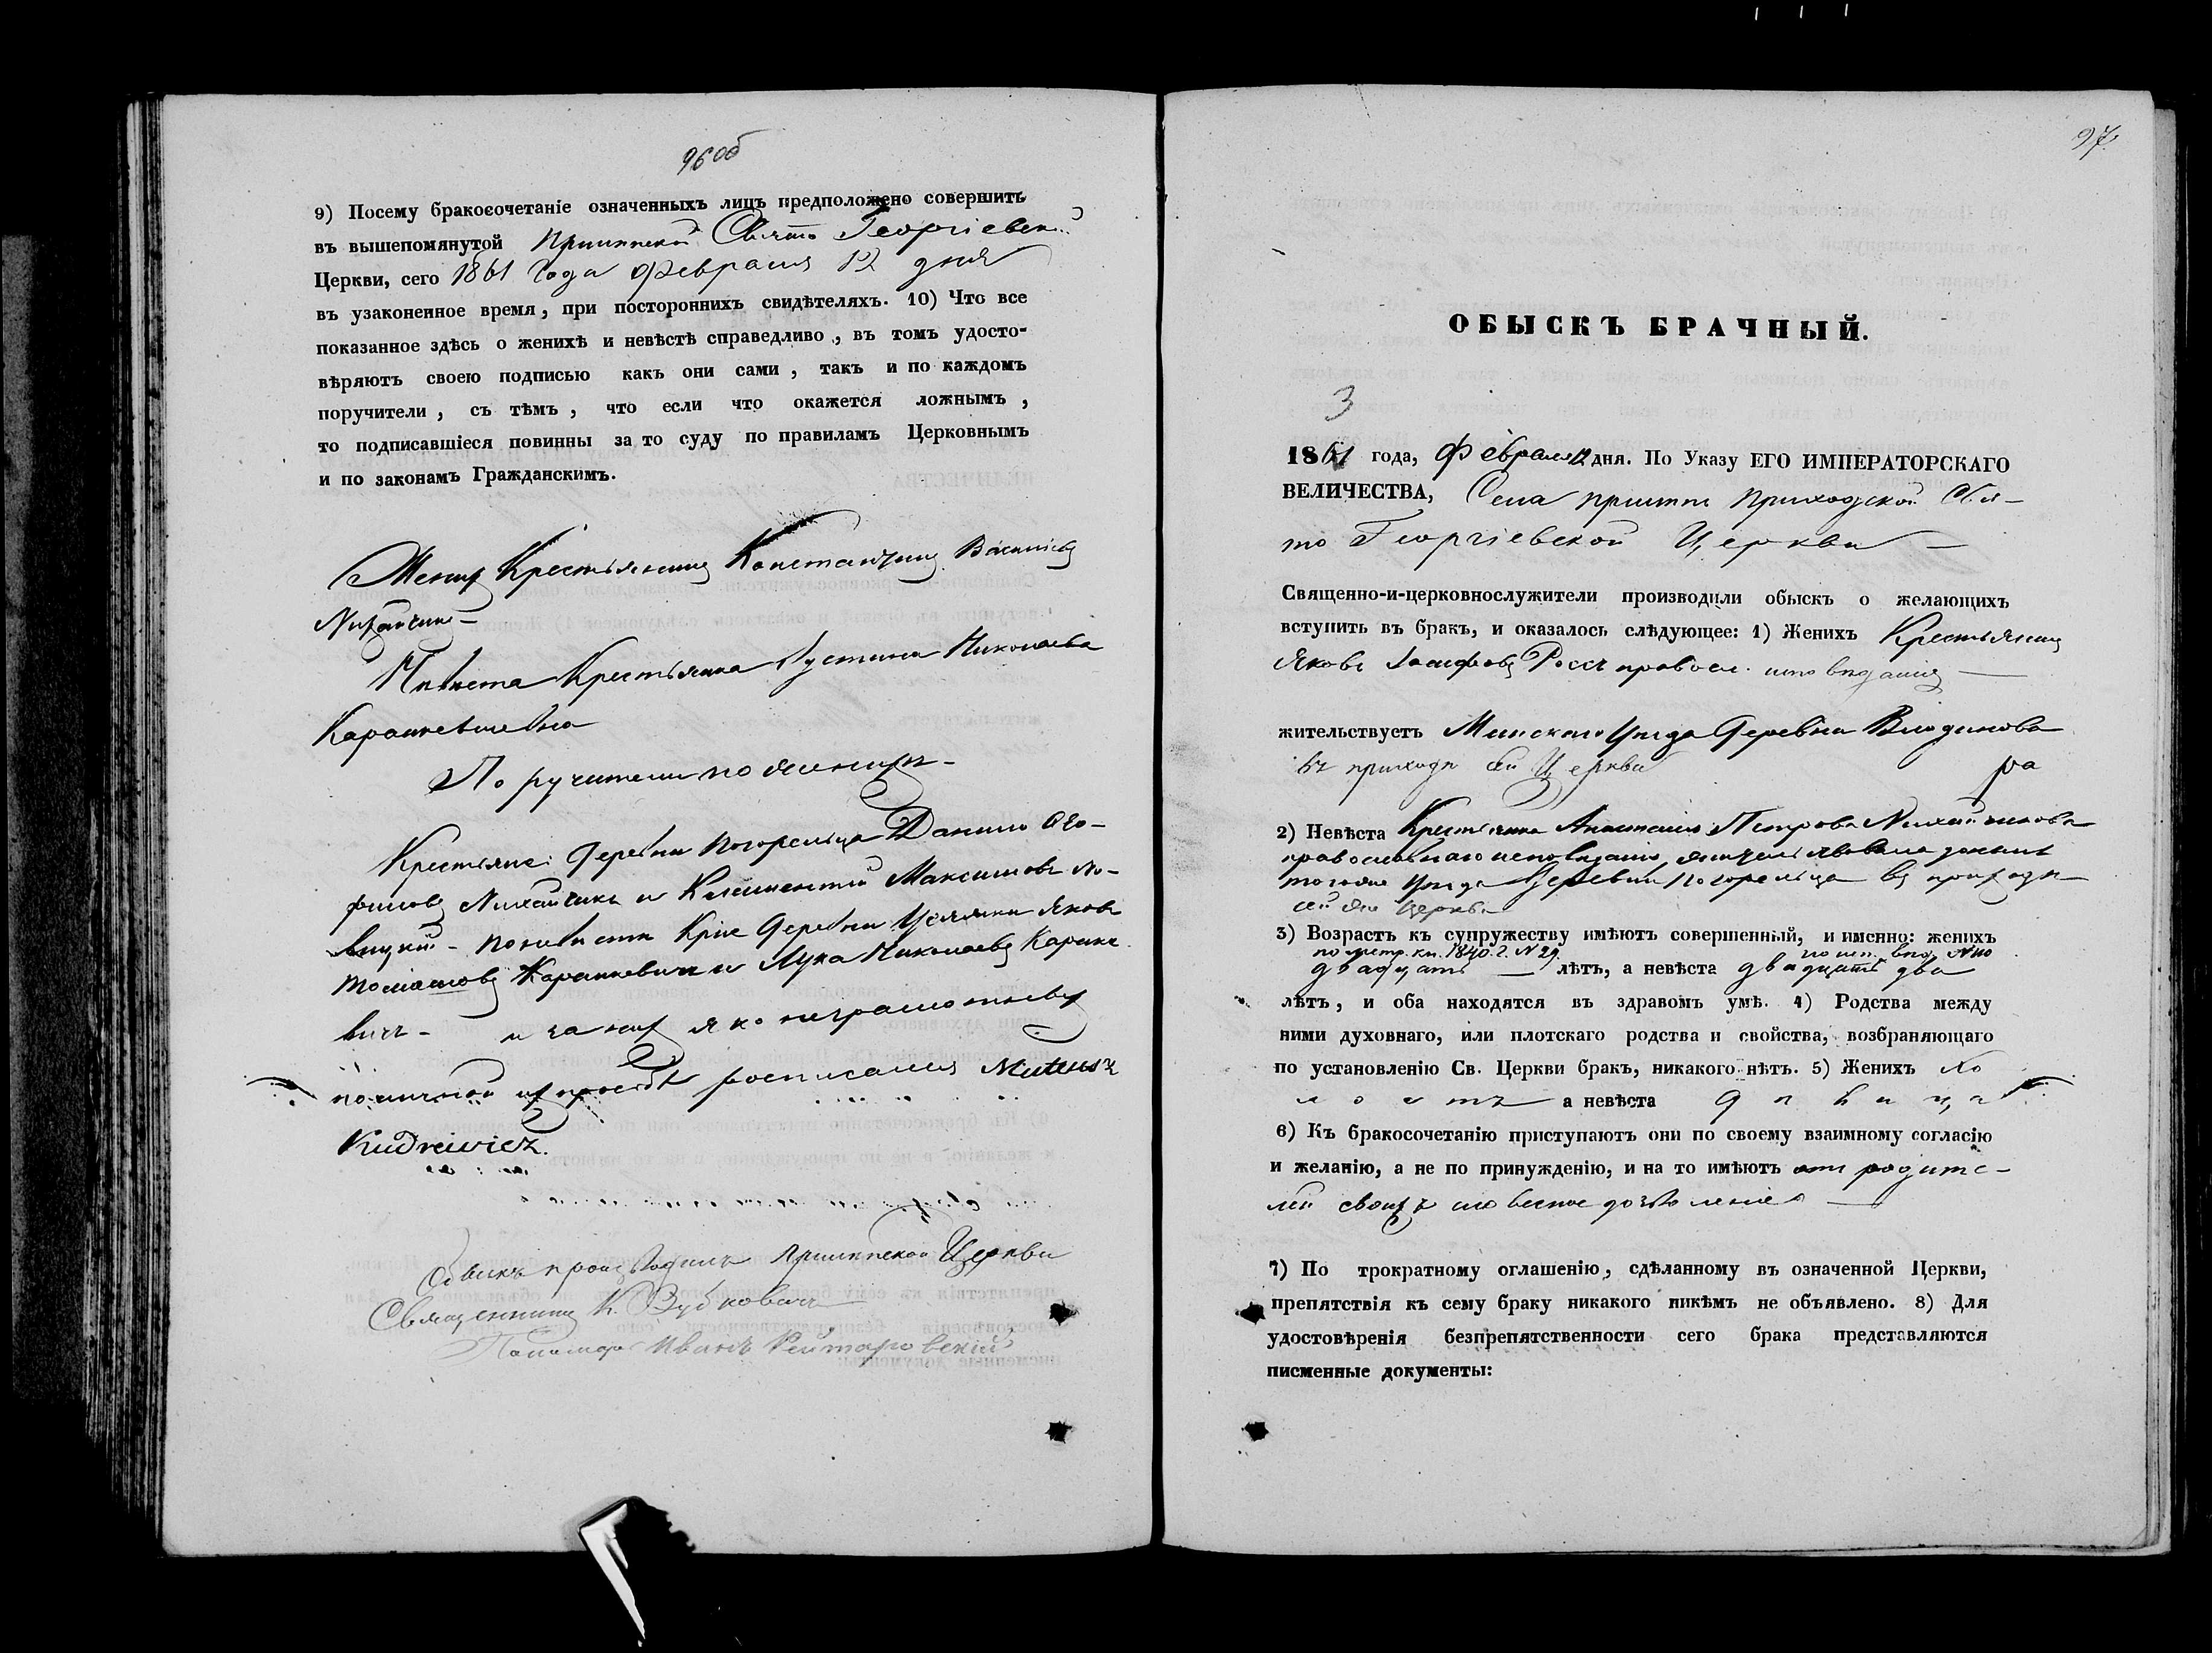 96 об
9) Посему бракосочетаніе означенныхъ лицъ предположено совершить
въ вышепомянутой Прилипской Свято Георгіевск.
Церкви, сего 1861 года февраля 12 дня
въ узаконенное время, при постороннихъ свидѣтеляхъ. 10) Что все
показанное здѣсь о женихѣ и невѣстѣ справедливо, въ томъ удосто-
вѣряютъ своею подписью какъ они сами, такъ и по каждомъ
поручители, съ тѣмъ, что если что окажется ложнымъ,
то подписавшіеся повинны за то суду по правиламъ Церковнымъ
и по законамъ Гражданскимъ.
Женихъ Крестьянинъ Константинъ Васильевъ
Невѣста Крестьянка Устина Николаева
Каранкевичевна
Поручители по женихѣ -
Крестьяне: Деревни Погорельца Данило Ѳео-
филовъ Михайчикъ и Климентій Максимовъ
по невѣстѣ Кр͠не Деревни Яковъ
Томашовъ Каранкевичъ и Лука Николаевъ Каранке
вичъ - и за нихъ яко неграмотныхъ
по личной ихъ прозьбѣ росписался Mateusz
Kudrewicz.
Обыскъ производилъ Прилипской Церкви
Священникъ К. Зубковичъ
Пономарь Иванъ Рейтаровскій
97.
ОБЫСКЪ БРАЧНЫЙ.
3
1861 года, Февраля 12 дня. По Указу ЕГО ИМПЕРАТОРСКАГО
ВЕЛИЧЕСТВА, Села Прилепъ Приходской Свя-
то Георгіевской Церкви —
Священно-и-церковнослужители производили обыскъ о желающихъ
вступить въ бракъ, и оказалось слѣдующее: 1) Женихъ Крестьянинъ
Яковъ Іосифовъ Россъ правосл. исповѣданія —
жительствуетъ Минскаго Уѣзда Деревни
въ приходѣ сей Церкви ра
2) Невѣста Крестьянка Анастасія Петрова Михайчикова
православнаго исповѣданія, жительствовала донынѣ
тогоже Уѣзда Деревни Погорельца въ приходѣ
сей же Церкви
3) Возрастъ къ супружеству имѣютъ совершенный, и именно: женихъ
по метр. кн. 1840 г. N 29 по исп. вѣд. N 110
двадцать — лѣтъ, а невѣста двадцать два
лѣтъ, и оба находятся въ здравомъ умѣ. 4) Родства между
ними духовнаго, или плотскаго родства и свойства, возбраняющаго
по установленію Св. Церкви бракъ, никакого нѣтъ. 5) Женихъ хо
лостъ а невѣста дѣвица
6) Къ бракосочетанію приступаютъ они по своему взаимному согласію
и желанію, а не по принужденію, и на то имѣютъ отъ родите-
лей своихъ словесное дозволеніе —
7) По трократному оглашенію, сдѣланному въ означенной Церкви,
препятствія къ сему браку никакого никѣмъ не объявлено. 8) Для
удостовѣренія безпрепятственности сего брака представляются
писменные документы: